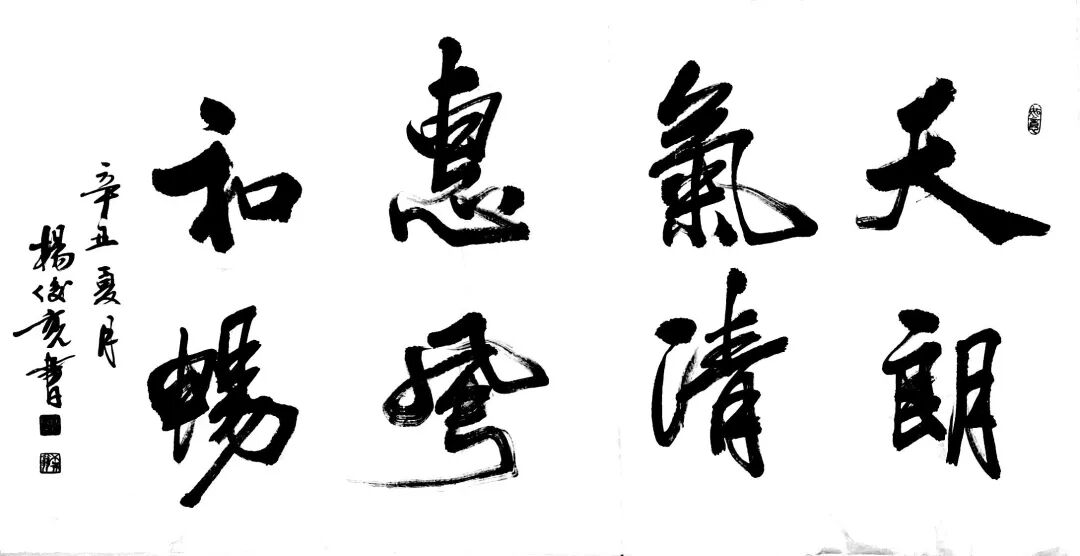 天朗
氣清
惠風
和暢
辛丑夏月
楊俊亮書